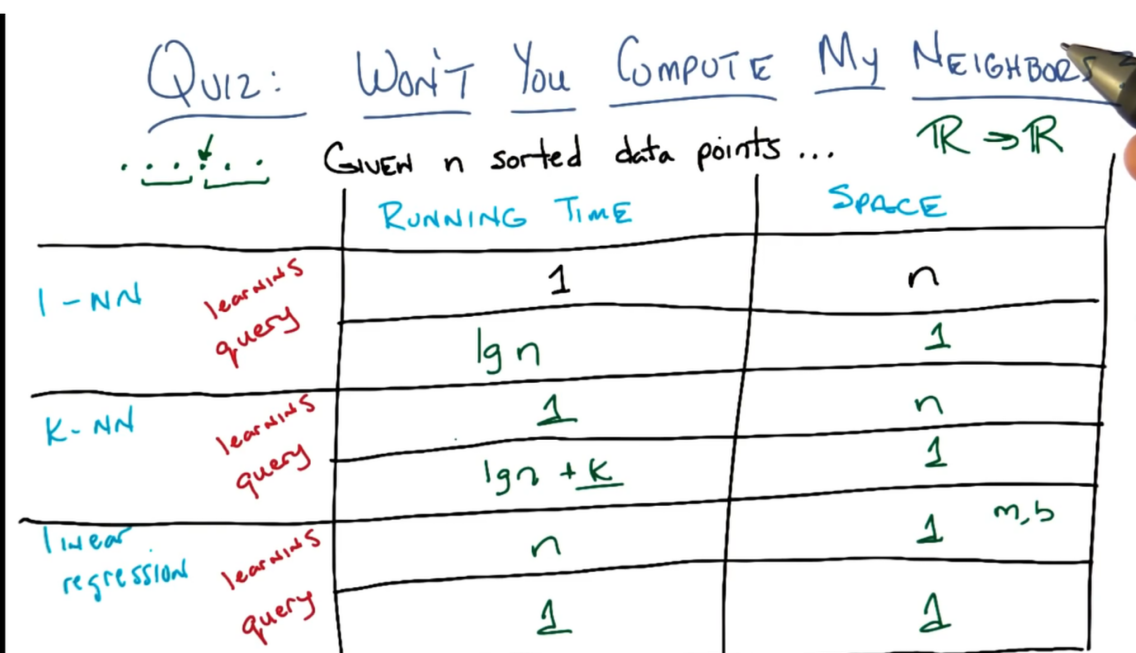 QUIZ: WON'T YOU COMPUTE MY NEIGHBORS
GIVEN n sorted data points ... ℝ → ℝ
RUNNING TIME SPACE
1-NN learning 1 n
query lg n 1
K-NN learning 1 n
query lg n + K 1
linear regression learning n 1 m,b
query 1 1